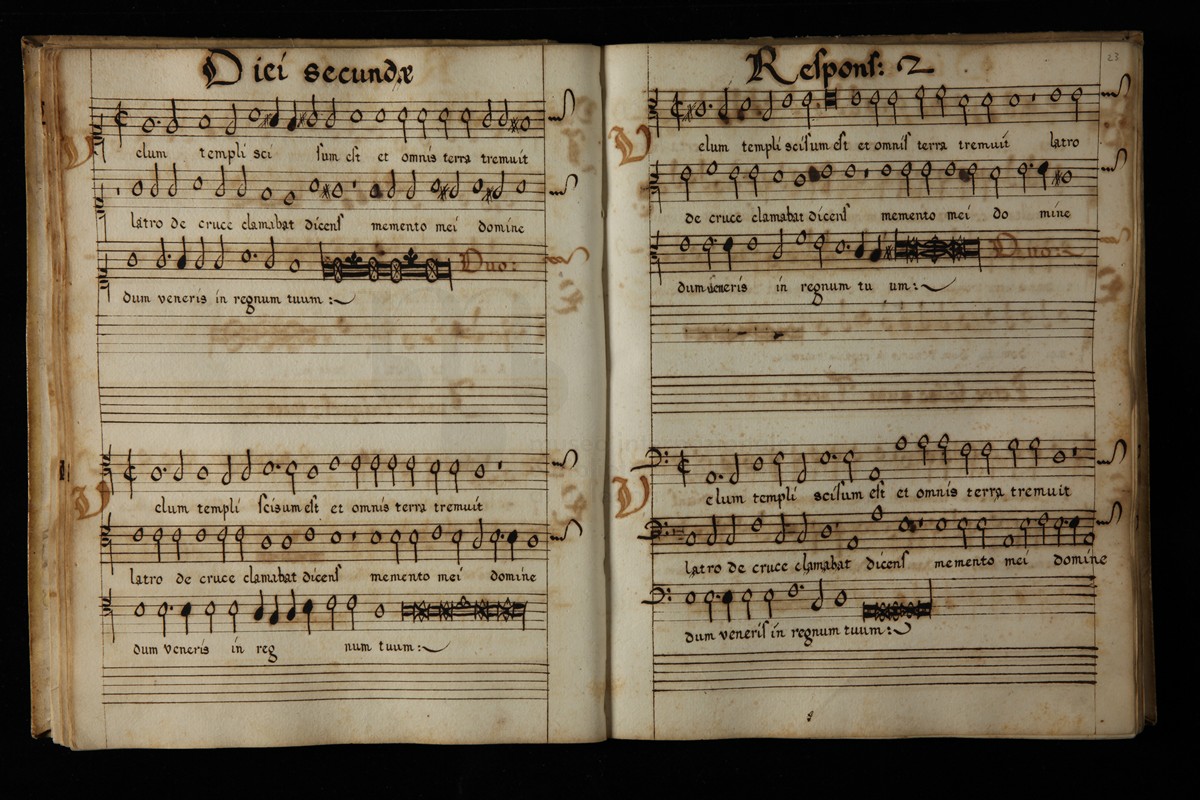 Diei secundæ
Velum templi scisum est et omnis terra tremuit
latro de cruce clamabat dicens memento mei domine
Duo:
dum veneris in regnum tuum:
Velum templi scisum est et omnis terra tremuit
latro de cruce clamabat dicens memento mei domine
dum veneris in regnum tuum:
Respons: 2
23
Velum templi scisum est et omnis terra tremuit latro
de cruce clamabat dicens memento mei domine
Duo:
dum veneris in regnum tuum:
Velum templi scisum est et omnis terra tremuit
latro de cruce clamabat dicens memento mei domine
dum veneris in regnum tuum: